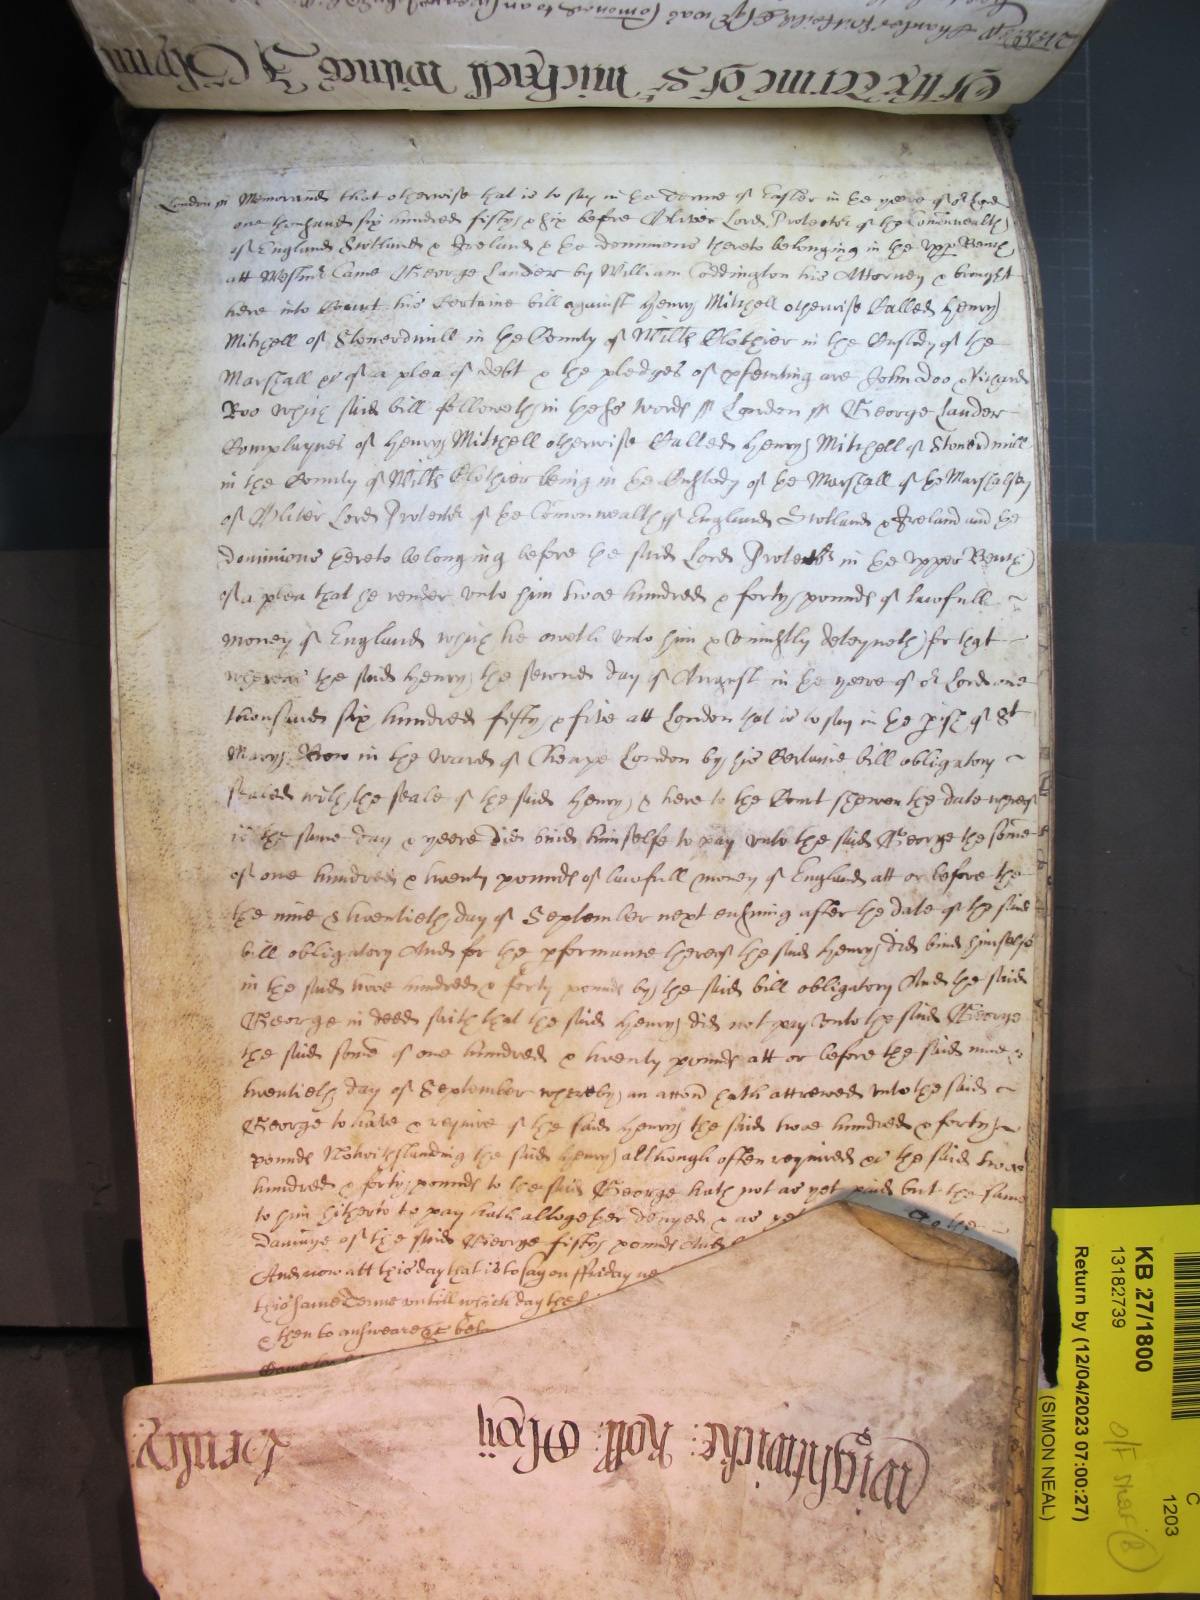 of the terme of St Michaell
London ss Memorand that otherwise that is to say in the Terme of Easter in the yeere of or Lord
one thousand six hundred fifty & six before Oliver Lord Protector of the Comonwealth
of England Scotland & Ireland & the dominions thereto belonging in the Upper Bench
att Westmr Came George Lander by William Coddington his Attorney & brought
here into Court his Certaine bill against Henry Mitchell otherwise Called Henry
Mitchell of in the County of Wilts Clothier in the Custody of the
Marshall &c of a plea of debt & the pledges of psecuting are John Doo & Richard
Roo which said bill followeth in these words ss London ss George Lander
Complaynes of Henry Mitchell otherwise Called Henry Mitchell of
in the County of Wilts Clothier being in the Custody of the Marshall of the Marshalsey
of Oliver Lord Protector of the Comonwealth of England Scotland & Ireland and the
dominions thereto belonging before the said Lord Protector in the upper Bench
of a plea that he render unto him twoe hundred & forty pounds of lawfull
money of England which he oweth unto him & uniustly deteyneth for that
whereas the said Henry the second day of August in the yeere of or Lord one
thousand six hundred fifty & five att London that is to say in the pish of St
Mary Bow in the ward of Cheape London by his Certaine bill obligatory
sealed with the seale of the said Henry & here to the Court shewen the date whereof
is the same day & yeere did bind himselfe to pay unto the said George the some
of one hundred & twenty pounds of lawfull money of England att or before the
the nine & twentieth day of September next ensuing after the date of the said
bill obligatory And for the pformance thereof the said Henry did bind himselfe
in the said twoe hundred & forty pounds by the said bill obligatory And the said
George in deed saith that the said Henry did not pay unto the said George
the said some of one hundred & twenty pounds att or before the said nine &
twentieth day of September whereby an accon hath accrewed unto the said
George to have & require of the said Henry the said twoe hundred & forty
pounds Notwithstanding the said Henry although often required &c the said twoe
hundred & forty pounds to the said George hath not as yet paid but the same
to him hitherto to pay hath altogether denyed & as yet to the
damage of the said George fifty pounds And
And now att this day that is to say on ffriday
this same Terme untill which day the
& then to answeare &c
Wightwicke: Roll:
KB 27/1800
13182739
Return by (12/04/2023 07:00:27)
(SIMON NEAL)
C
1203